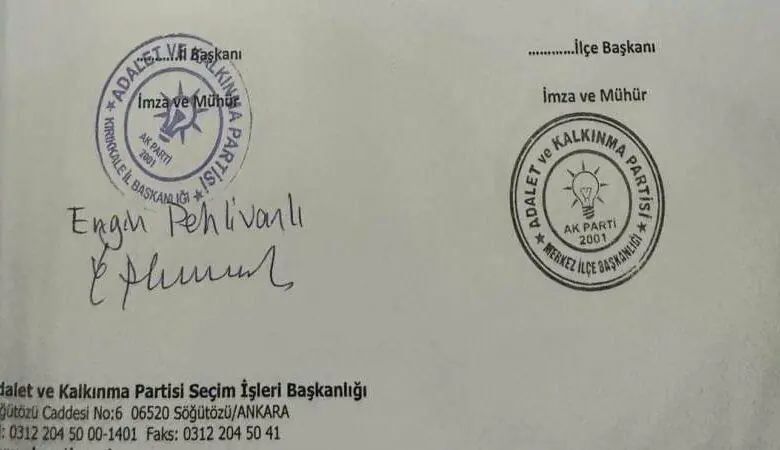 ............İl Başkanı
İmza ve Mühür
ADALET VE KALKINMA PARTİSİ
AK PARTİ
2001
KIRIKKALE İL BAŞKANLIĞI
Engin Pehlivanlı
............İlçe Başkanı
İmza ve Mühür
ADALET ve KALKINMA PARTİSİ
AK PARTİ
2001
MERKEZ İLÇE BAŞKANLIĞI
dalet ve Kalkınma Partisi Seçim İşleri Başkanlığı
ğütözü Caddesi No:6 06520 Söğütözü/ANKARA
: 0312 204 50 00-1401 Faks: 0312 204 50 41